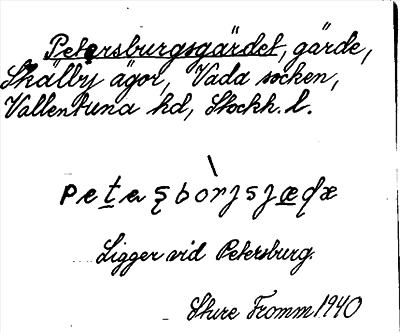 Petersburgsgärdet, gärde,
Skälby ägor, Vada socken,
Vallentuna hd, Stockh. l.
Ligger vid Petersburg.
Sture Fromm 1940